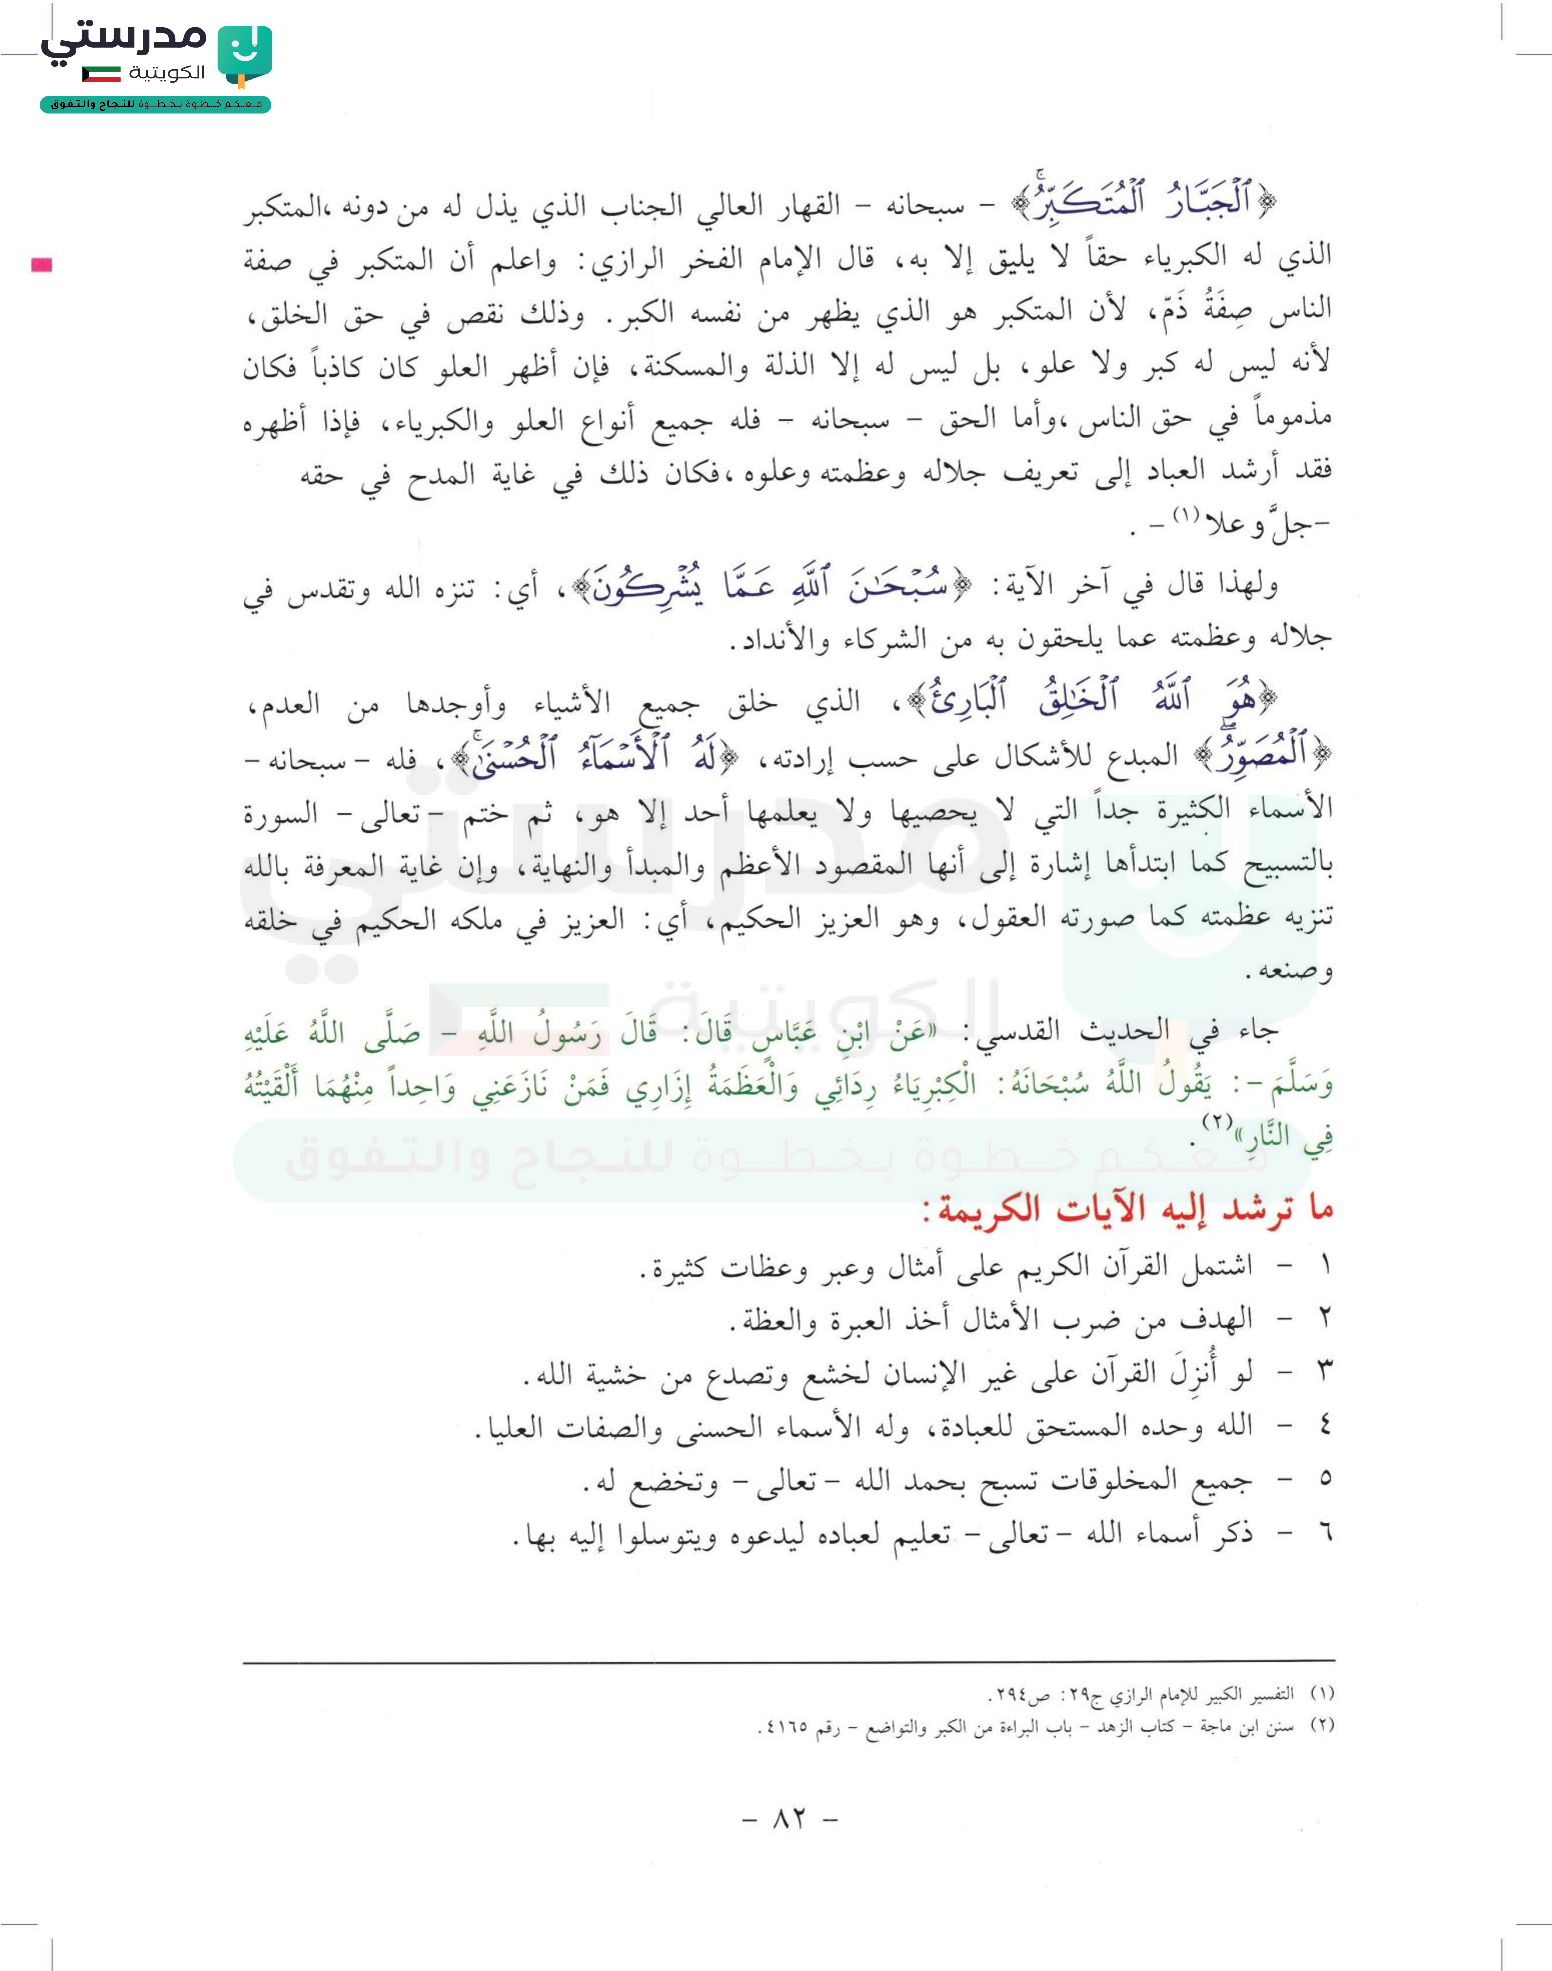 مدرستي
الكويتية
معكم خطوة بخطوة للنجاح والتفوق
﴿ٱلْجَبَّارُ ٱلْمُتَكَبِّرُۚ﴾ – سبحانه – القهار العالي الجناب الذي يذل له من دونه ،المتكبر
الذي له الكبرياء حقاً لا يليق إلا به، قال الإمام الفخر الرازي: واعلم أن المتكبر في صفة
الناس صِفَةُ ذَمّ، لأن المتكبر هو الذي يظهر من نفسه الكبر. وذلك نقص في حق الخلق،
لأنه ليس له كبر ولا علو، بل ليس له إلا الذلة والمسكنة، فإن أظهر العلو كان كاذباً فكان
مذموماً في حق الناس ،وأما الحق – سبحانه – فله جميع أنواع العلو والكبرياء، فإذا أظهره
فقد أرشد العباد إلى تعريف جلاله وعظمته وعلوه ،فكان ذلك في غاية المدح في حقه
–جلَّ وعلا(١)– .
ولهذا قال في آخر الآية: ﴿سُبْحَـٰنَ ٱللَّهِ عَمَّا يُشْرِكُونَ﴾، أي: تنزه الله وتقدس في
جلاله وعظمته عما يلحقون به من الشركاء والأنداد.
﴿هُوَ ٱللَّهُ ٱلْخَـٰلِقُ ٱلْبَارِئُ﴾، الذي خلق جميع الأشياء وأوجدها من العدم،
﴿ٱلْمُصَوِّرُۖ﴾ المبدع للأشكال على حسب إرادته، ﴿لَهُ ٱلْأَسْمَآءُ ٱلْحُسْنَىٰۚ﴾، فله –سبحانه–
الأسماء الكثيرة جداً التي لا يحصيها ولا يعلمها أحد إلا هو، ثم ختم –تعالى– السورة
بالتسبيح كما ابتدأها إشارة إلى أنها المقصود الأعظم والمبدأ والنهاية، وإن غاية المعرفة بالله
تنزيه عظمته كما صورته العقول، وهو العزيز الحكيم، أي: العزيز في ملكه الحكيم في خلقه
وصنعه.
جاء في الحديث القدسي: «عَنْ ابْنِ عَبَّاسٍ قَالَ: قَالَ رَسُولُ اللَّهِ – صَلَّى اللَّهُ عَلَيْهِ
وَسَلَّمَ–: يَقُولُ اللَّهُ سُبْحَانَهُ: الْكِبْرِيَاءُ رِدَائِي وَالْعَظَمَةُ إِزَارِي فَمَنْ نَازَعَنِي وَاحِداً مِنْهُمَا أَلْقَيْتُهُ
فِي النَّارِ»(٢).
ما ترشد إليه الآيات الكريمة:
١ – اشتمل القرآن الكريم على أمثال وعبر وعظات كثيرة.
٢ – الهدف من ضرب الأمثال أخذ العبرة والعظة.
٣ – لو أُنزِلَ القرآن على غير الإنسان لخشع وتصدع من خشية الله.
٤ – الله وحده المستحق للعبادة، وله الأسماء الحسنى والصفات العليا.
٥ – جميع المخلوقات تسبح بحمد الله –تعالى– وتخضع له.
٦ – ذكر أسماء الله –تعالى– تعليم لعباده ليدعوه ويتوسلوا إليه بها.
(١) التفسير الكبير للإمام الرازي ج٢٩: ص٢٩٤.
(٢) سنن ابن ماجة – كتاب الزهد – باب البراءة من الكبر والتواضع – رقم ٤١٦٥.
– ٨٢ –